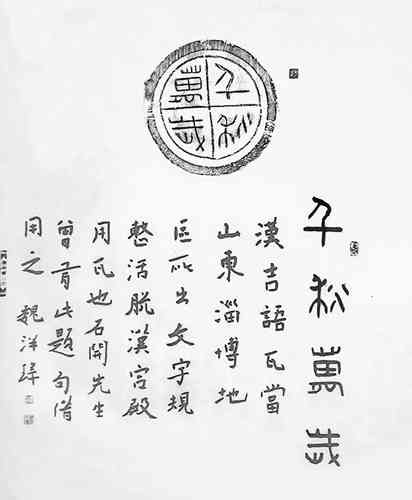 千秋萬歲
千秋萬歲
漢吉語瓦當
山東淄博地
區所出文字規
整活脱漢宮殿
用瓦也石開先生
曾有此題句借
用之 魏洋